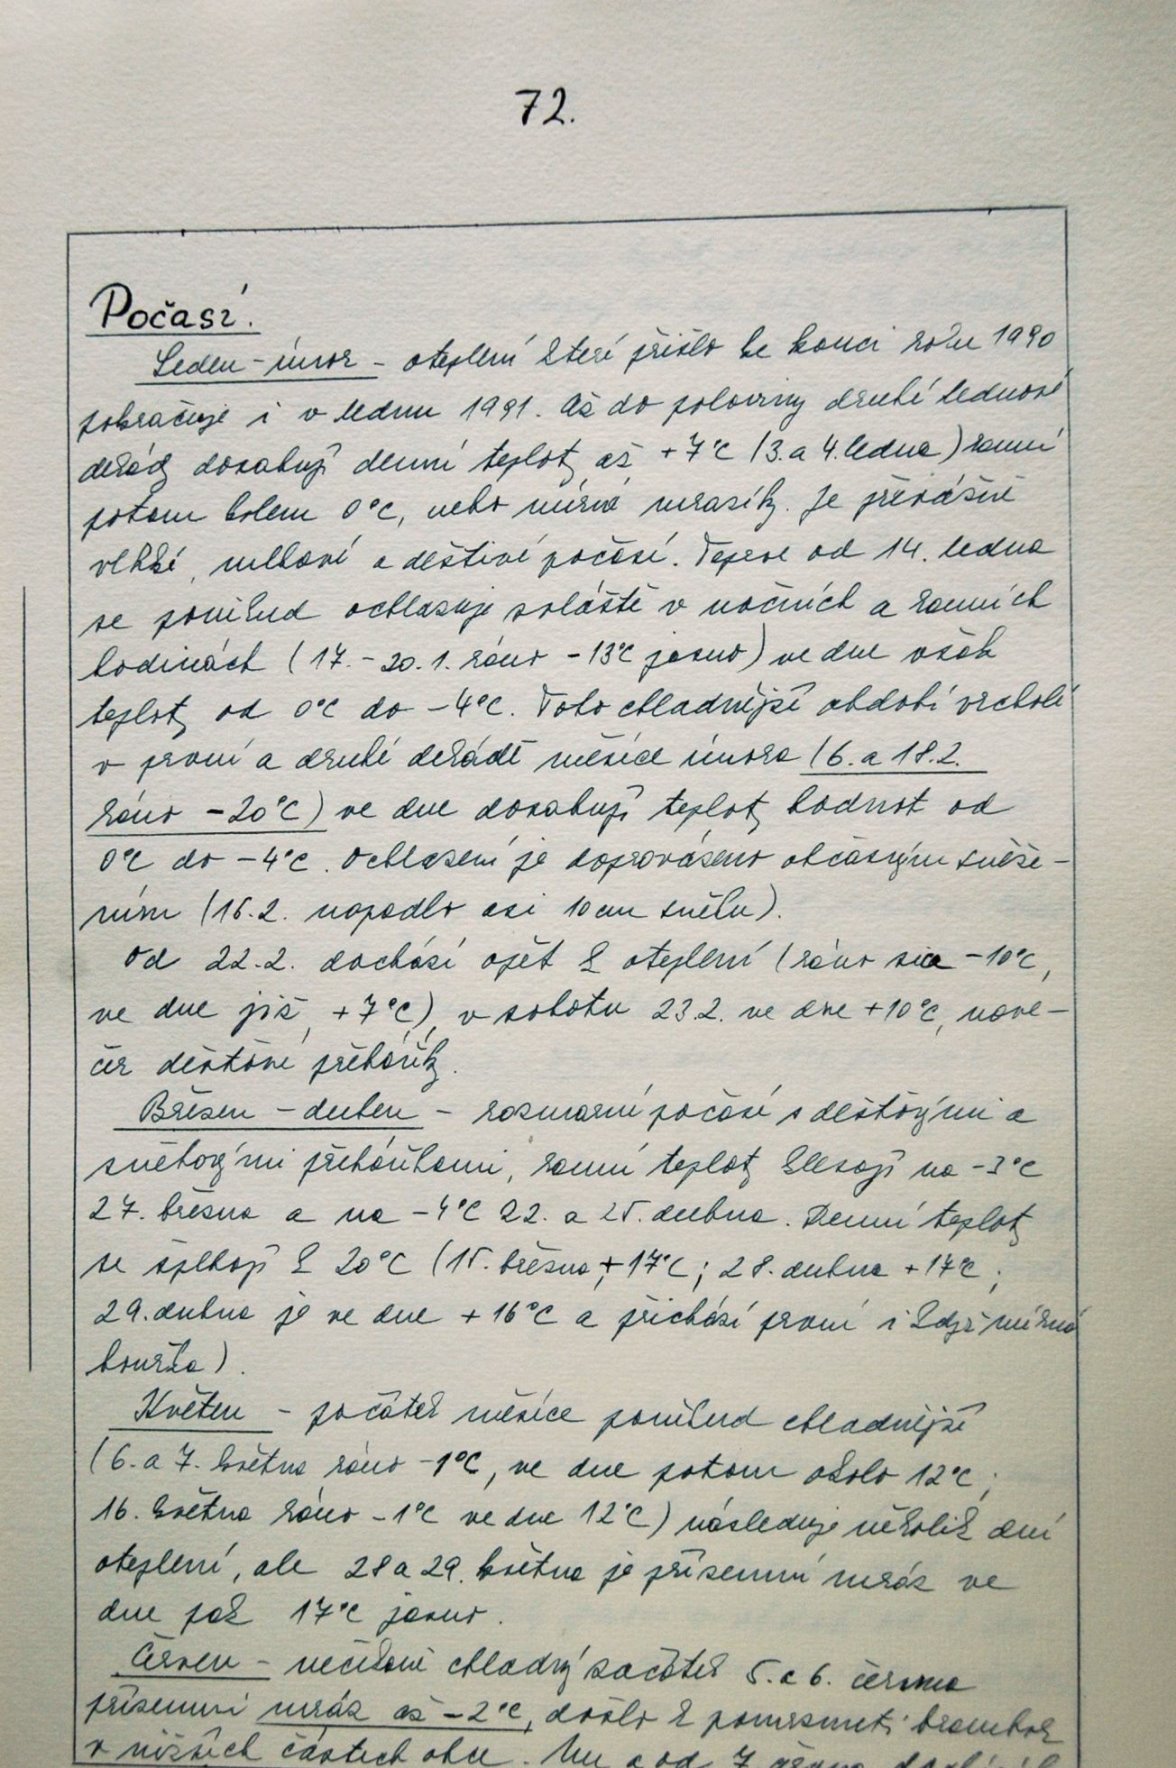 72.
Počasí.
Leden - únor - oteplení které přišlo ke konci roku 1990
pokračuje i v lednu 1991. Až do poloviny druhé lednové
dekády dosahují denní teploty až +7°C (3. a 4. ledna) ranní
potom kolem 0°C, nebo mírné mrazíky. Je převážně
vlhké, mlhavé a deštivé počasí. Teprve od 14. ledna
se poněkud ochlazuje zvláště v nočních a ranních
hodinách (17. - 20. 1. ráno -13°C jasno) ve dne však
teploty od 0°C do -4°C. Toto chladnější období vrcholí
v první a druhé dekádě měsíce února (6. a 18.2.
ráno -20°C) ve dne dosahují teploty hodnot od
0°C do -4°C. Ochlazení je doprovázeno občasným sněže-
ním (16.2. napadlo asi 10 cm sněhu).
Od 22.2. dochází opět k oteplení (ráno sice -10°C,
ve dne již +7°C), v sobotu 23.2. ve dne +10°C, nave-
čer dešťové přeháňky.
Březen - duben - rozmarné počasí s dešťovými a
sněhovými přeháňkami, ranní teploty klesají na -3°C
27. března a na -4°C 22. a 25. dubna. Denní teploty
se šplhají k 20°C (15. března +17°C; 28. dubna +17°C;
29. dubna je ve dne +16°C a přichází první i když mírná
bouřka).
Květen - počátek měsíce poněkud chladnější
(6. a 7. května ráno -1°C, ve dne potom okolo 12°C;
16. května ráno -1°C ve dne 12°C) následuje několik dní
oteplení, ale 28 a 29. května je přízemní mráz ve
dne pak 17°C jasno.
Červen - nečekaně chladný začátek 5. a 6. června
přízemní mráz až -2°C, došlo k pomrznutí brambor
v nižších částech obce. od 7. června